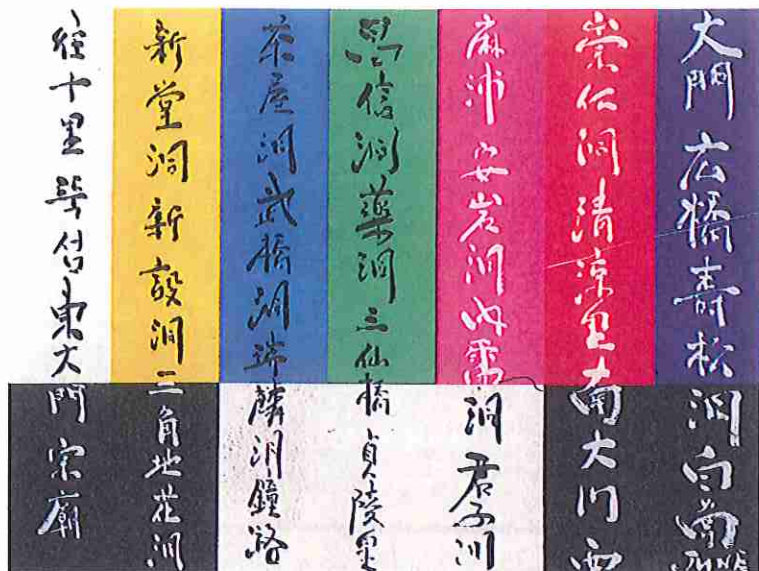 大門広橋壽松洞白
崇仁洞清凉里南大门西
麻浦安岩洞內需洞君子洞
信洞藥洞三仙橋貞陵里
茶屋洞武橋洞瑞麟洞鐘路
新堂洞新設洞三角地花洞
往十里東大門宗廟